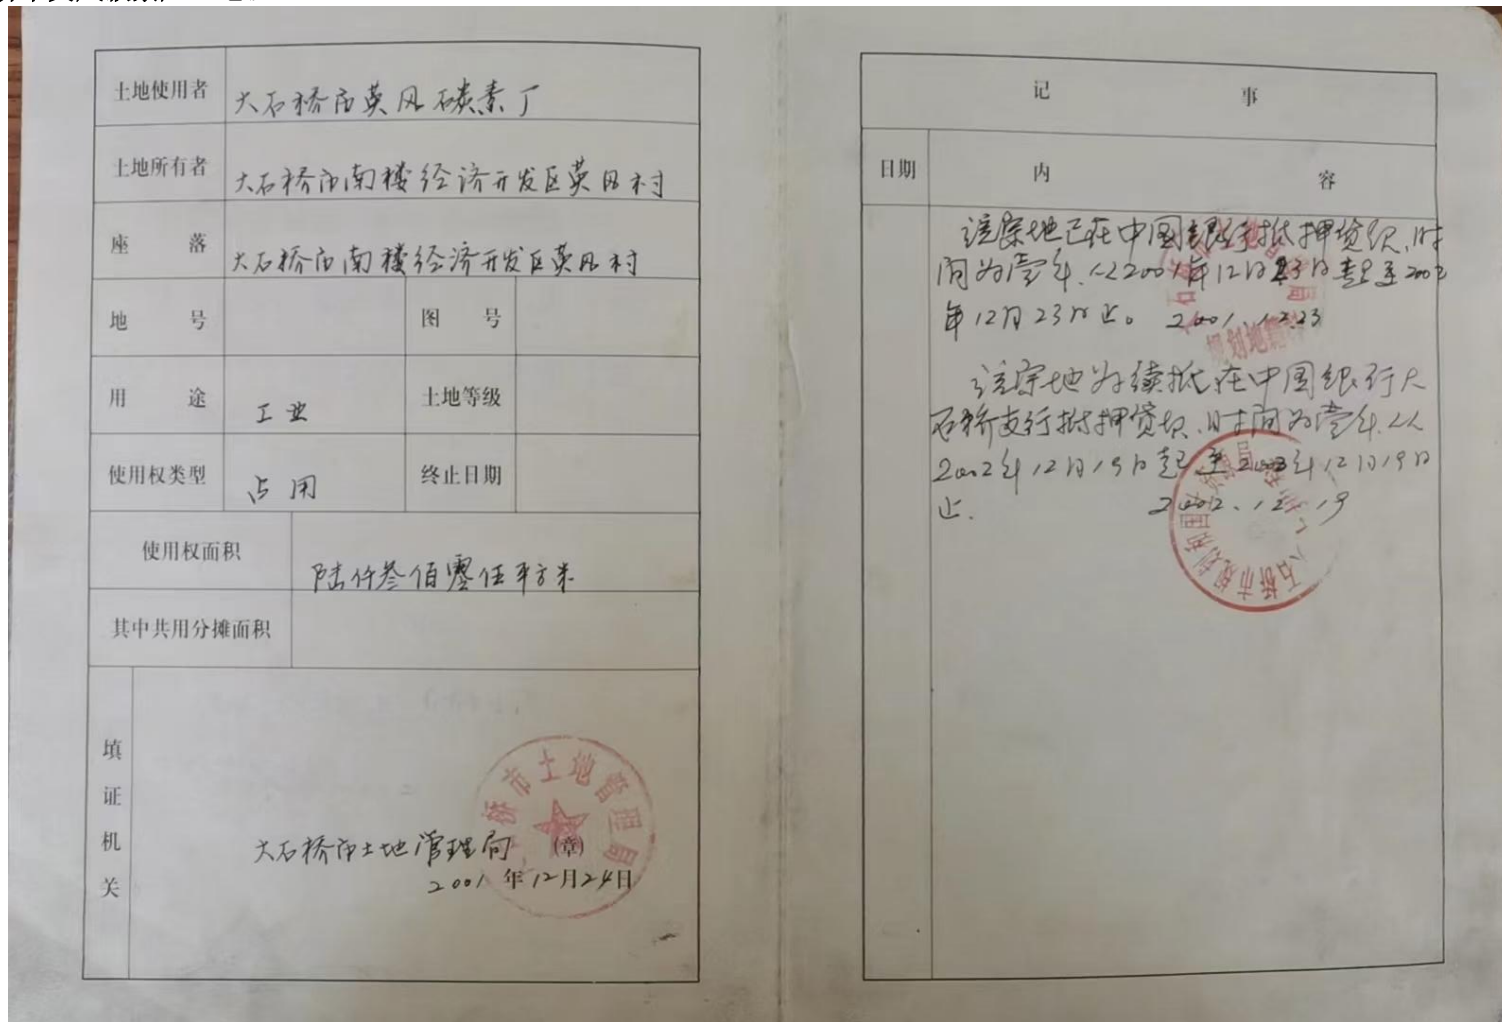 土地使用者 大石桥市英风碳素厂
土地所有者 大石桥市南楼经济开发区英风村
座落 大石桥市南楼经济开发区英风村
地号 图号
用途 工业 土地等级
使用权类型 占用 终止日期
使用权面积 陆仟叁佰零伍平方米
其中共用分摊面积
填证机关
大石桥市土地管理局 (章)
2001年12月24日
桥市土地管理局
记事
日期 内容
该宗地已在中国银行抵押贷款,时
间为壹年,从2001年12月23日起至2002
年12月23日止。 2001.12.23
规划地籍
该宗地为续抵,在中国银行大
石桥支行抵押贷款,时间为壹年,从
2002年12月19日起至2003年12月19日
止. 2002.12.19
大石桥市规划和国土资源局